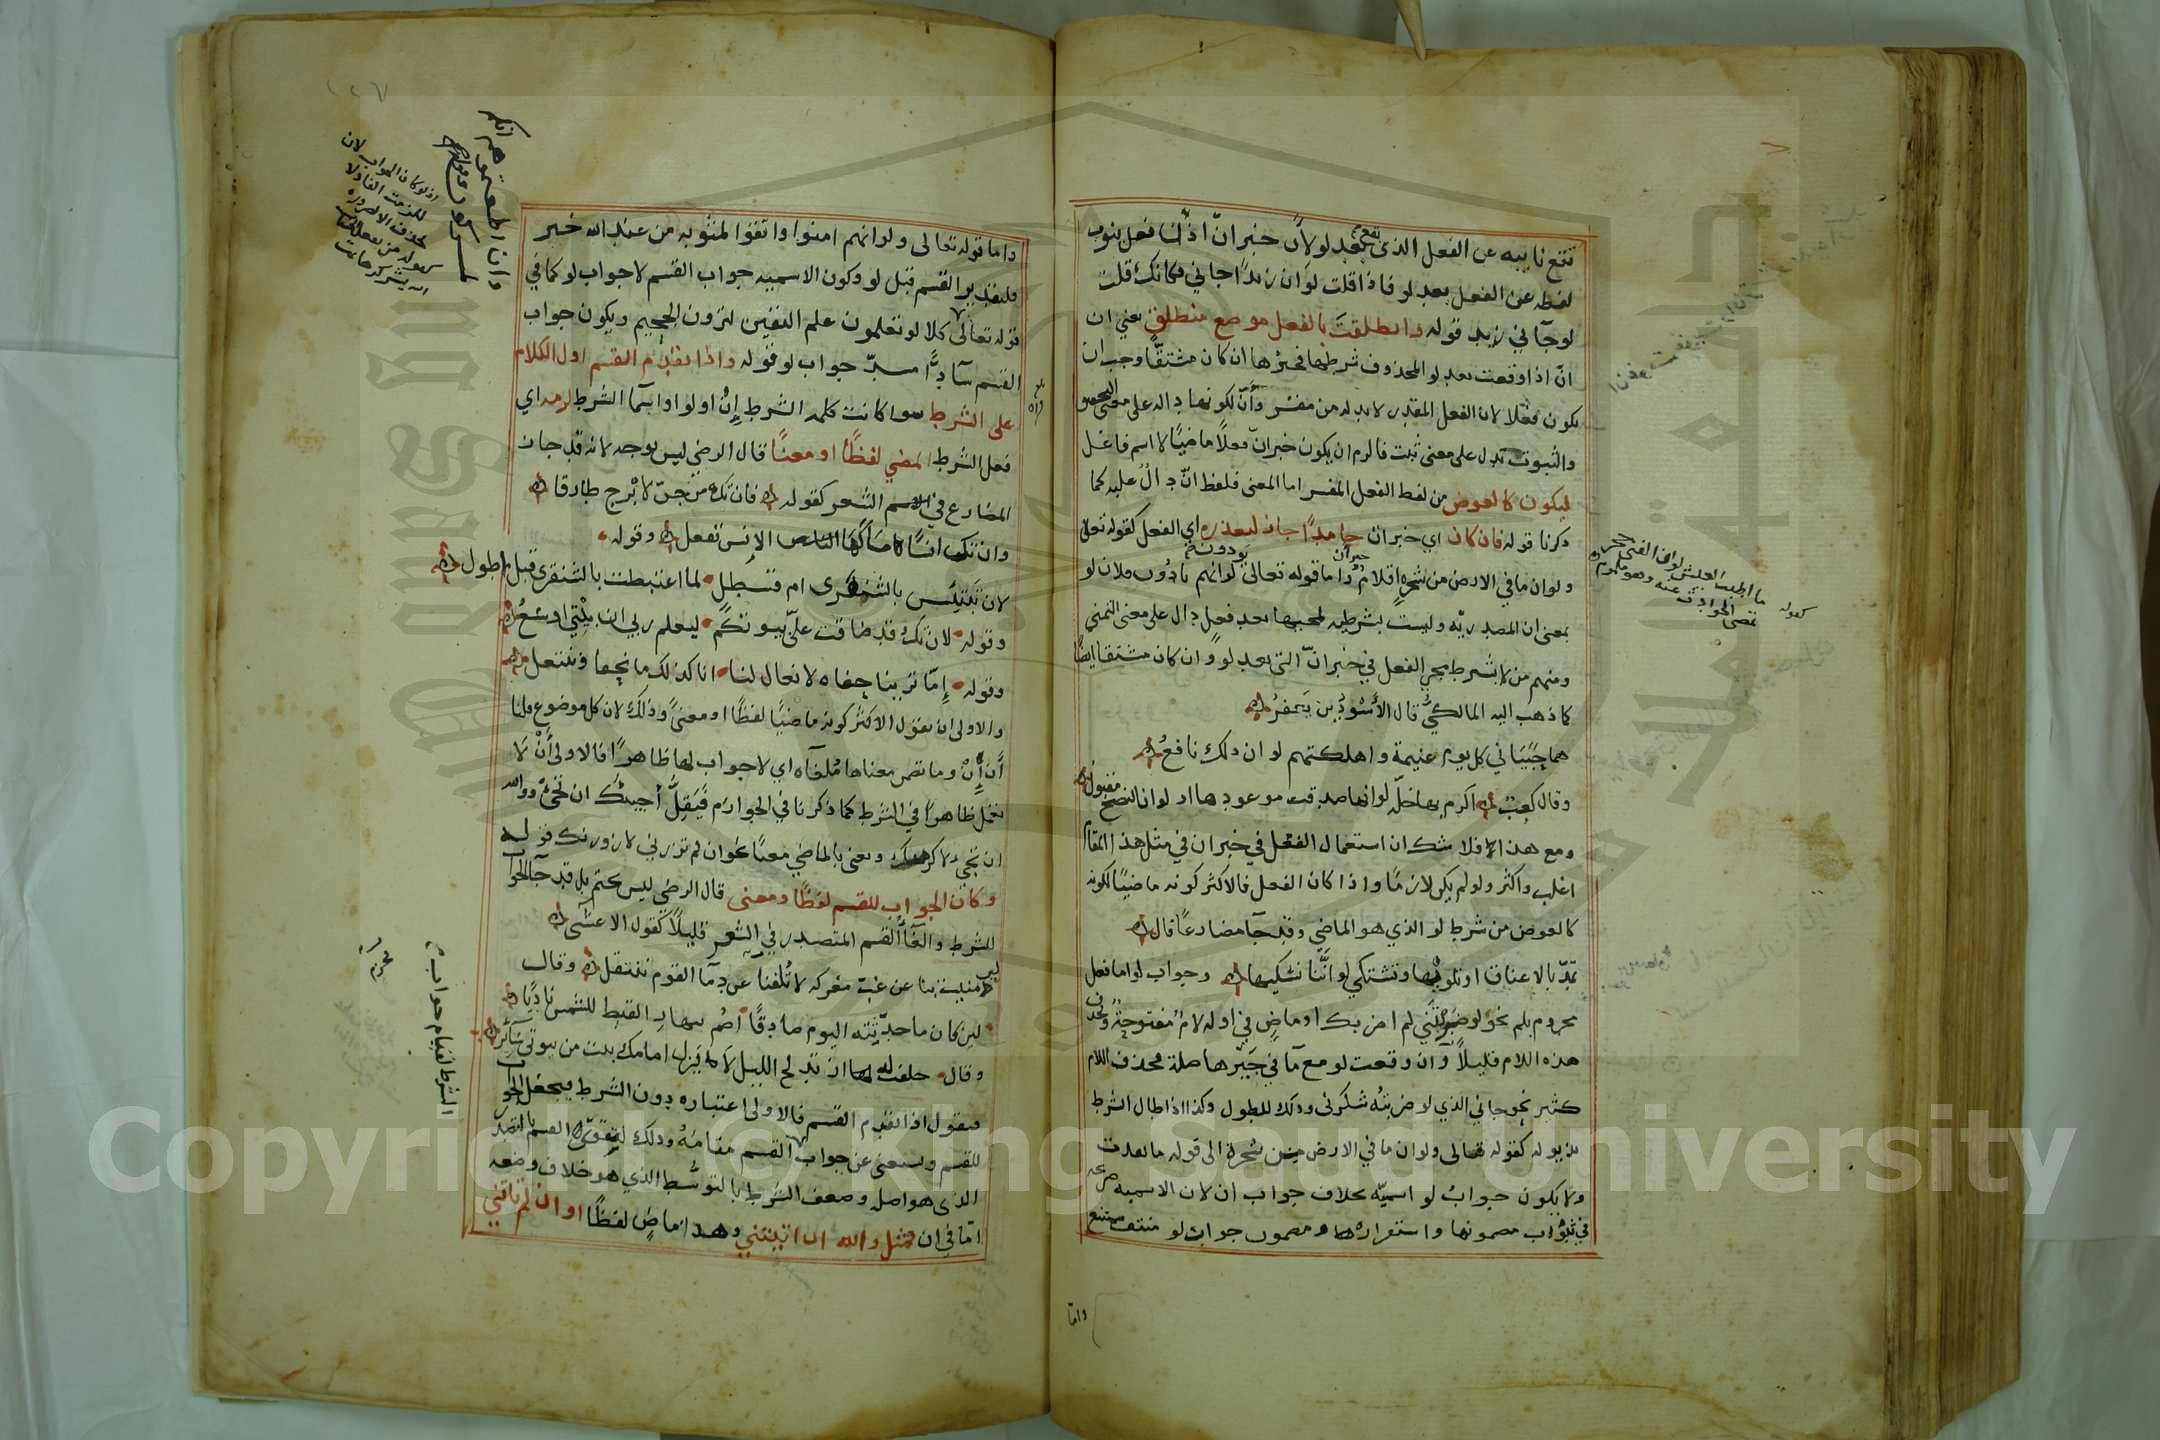 تقع نايبه عن الفعل الذي يقع بعد لو لأن خبر انّ اذًا فعل ينوب
لفظه عن الفعل بعد لو فاذا قلت لو ان زيدًا جاني فكانك قلت
لو جآني زيد قوله وانطلقتَ بالفعل موضع منطلق يعني ان
انّ اذا وقعت بعد لو المحذوف شرطها فخبرها ان كان مشتقًّا وجب ان
يكون فعلا لان الفعل المقدر لا بد له من مفسّر وأنّ لكونها داله على معنى التحقق
والثبوت تدل على معنى ثبت فالزم ان يكون خبر انّ فعلًا ماضيًا لا اسم فاعل
ليكون كالعوض من لفظ الفعل المفسر اما المعنى فلفظ انّ دالٌ عليه كما
ذكرنا قوله فان كان اي خبر ان جامدًا جاز لتعذره اي الفعل كقوله تعالى
ولو ان ما في الارض من شجرةٍ اقلام واما قوله تعالى لو انهم بادون فلان لو
بمعنى ان المصدريّه وليست بشرطيه لمجيها بعد فعلٍ دال على معنى التمني
ومنهم من لا يشرط مجي الفعل في خبر انّ التي بعد لو وان كان مشتقا ايضًا
كما ذهب اليه المالكيُّ قال الأسْودُ بن يَعفرُ
هما خَيّبَاني كل يوم غنيمة واهلكتهم لو ان ذلك نافعُ
وقال كعبٌ اكرم بها خلّه لو انها صدقت موعودها او لو ان النصح مقبولُ
ومع هذا فلا شك ان استعمال الفعل في خبر ان في مثل هذا المقام
اغلب واكثر ولو لم يكن لازمًا واذا كان الفعل فالاكثر كونه ماضيًا لكونه
كالعوض من شرط لو الذي هو الماضي وقد جآ مضارعًا قال
تمدّ بالاعناق او تلويْها وتشتكي لو انَّنا نشكيها وجواب لو اما فعل
مجزوم بلم نحو لو ضربْتَني لم اضربك او ماضٍ في اوله لامٌ مفتوحةٌ وتحذف
هذه اللام قليلاً وان وقعت لو مع ما في حَيّزها صلة فحذف اللام
كثير نحو جاني الذي لو ضربتُه شكرني وذلك للطول وكذا اذا طال الشرط
بذيوله كقوله تعالى ولو ان ما في الارض من شجرة الى قوله ما نفدت
ولا يكون جوابُ لو اسميّه بخلاف جواب ان لان الاسميه صريحه
في ثبوت مضمونها واستقرارها ومضمون جواب لو منتف ممتنع
واما
كقوله ما اطيب العيش لو ان الفتى حجر
تنبو الحوادث عنه وهو ملموم
واما قوله تعالى ولو انهم امنوا واتقوا لمثوبه من عند الله خير
فلتقدير القسم قبل لو وكون الاسميه جواب القسم لا جواب لو كما في
قوله تعالى كلا لو تعلمون علم اليقين لترون الجحيم ويكون جواب
القسم سآدًّا مسدّ جواب لو قوله واذا تقدم القسم اول الكلام
على الشرط سوا كانت كلمه الشرط إنْ او لو او اسما الشرط لزمه اي
فعل الشرط المضي لفظًا او معنًا قال الرضي ليس بوجه لانه قد جا ان
المضارع في الشعر كقوله فان تك من جنّ لابرح طارقا
وان تك انسًا ما كها الانس تفعل وقوله
لان تبتئس بالشنفرى ام قسطل لما اغتبطت بالشنفرى قبل اطول
وقوله لان تك قد ضاقت علىّ بيوتكم ليعلم ربي ان بيْتي اوسعُ
وقوله إمّا ترينا حفاه لا نعال لنا انا كذلك ما نحفا وننتعل
والاولى ان نقول الاكثر كونه ماضيًا لفظًا او معنىً وذلك لان كل موضوع قلنا
أن إنْ وما تضمن معناها مُلغآه اي لا جواب لها ظاهرًا فالاولى أنْ لا
تعمل ظاهرًا في الشرط كما ذكرنا في الجوازم فيَقِلُّ أجيئك ان تجئ ووالله
ان تجي لاكرمنك ونعنى بالماضي معنًا نحو ان لم تزرني لازورنك قوله
وكان الجواب للقسم لفظًا ومعنى قال الرضي ليس بحتم بل قد جآ الجواب
للشرط والغآ القسم المتصدر في الشعر قليلاً كقول الاعشى
لين منيت بنا عن غبّ معركه لا تُلفنا عن دمآ القوم ننتفل وقال
لين كان ما حدّثته اليوم صادقًا أصُم في نهار القيظ للشمس باديًا
وقال حلفت له ان تدلج الليل لا يزل امامك بيت من بيوتي سآئر
فنقول اذا تقدم القسم فالاولى اعتباره دون الشرط فيجعل الجواب
للقسم ويستغنى عن جواب القسم مقامَهُ وذلك لتقوّى القسم بالتصدر
الذي هو اصله وضعف الشرط بالتوسُّط الذي هو خلاف وضعه
اما في ان فمثل والله ان اتيتني وهذا ماضٍ لفظًا او ان لم تاتني
وان اطعتموهم انكم
لمشركون
الشرط لقيام جواب
مجزوم
Copyright © King Saud University